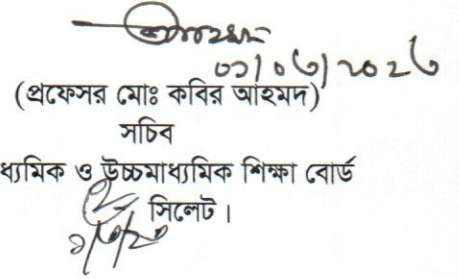 (প্রফেসর মোঃ কবির আহমদ)
সচিব
ধ্যমিক ও উচ্চমাধ্যমিক শিক্ষা বোর্ড
সিলেট।